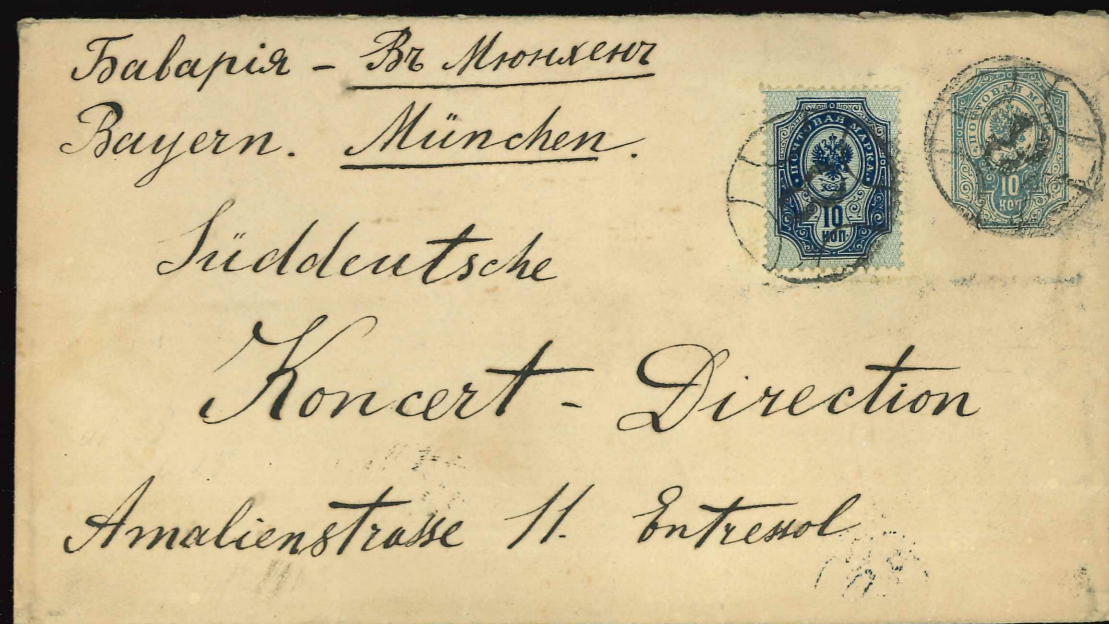 Баварія – Въ Мюнхенъ
Bayern. München.
ПОЧТОВАЯ МАРКА
10
КОП.
ПОЧТОВАЯ МАРКА
10
КОП.
Süddeutsche
Koncert - Direction
Amalienstrasse 11. Entressol